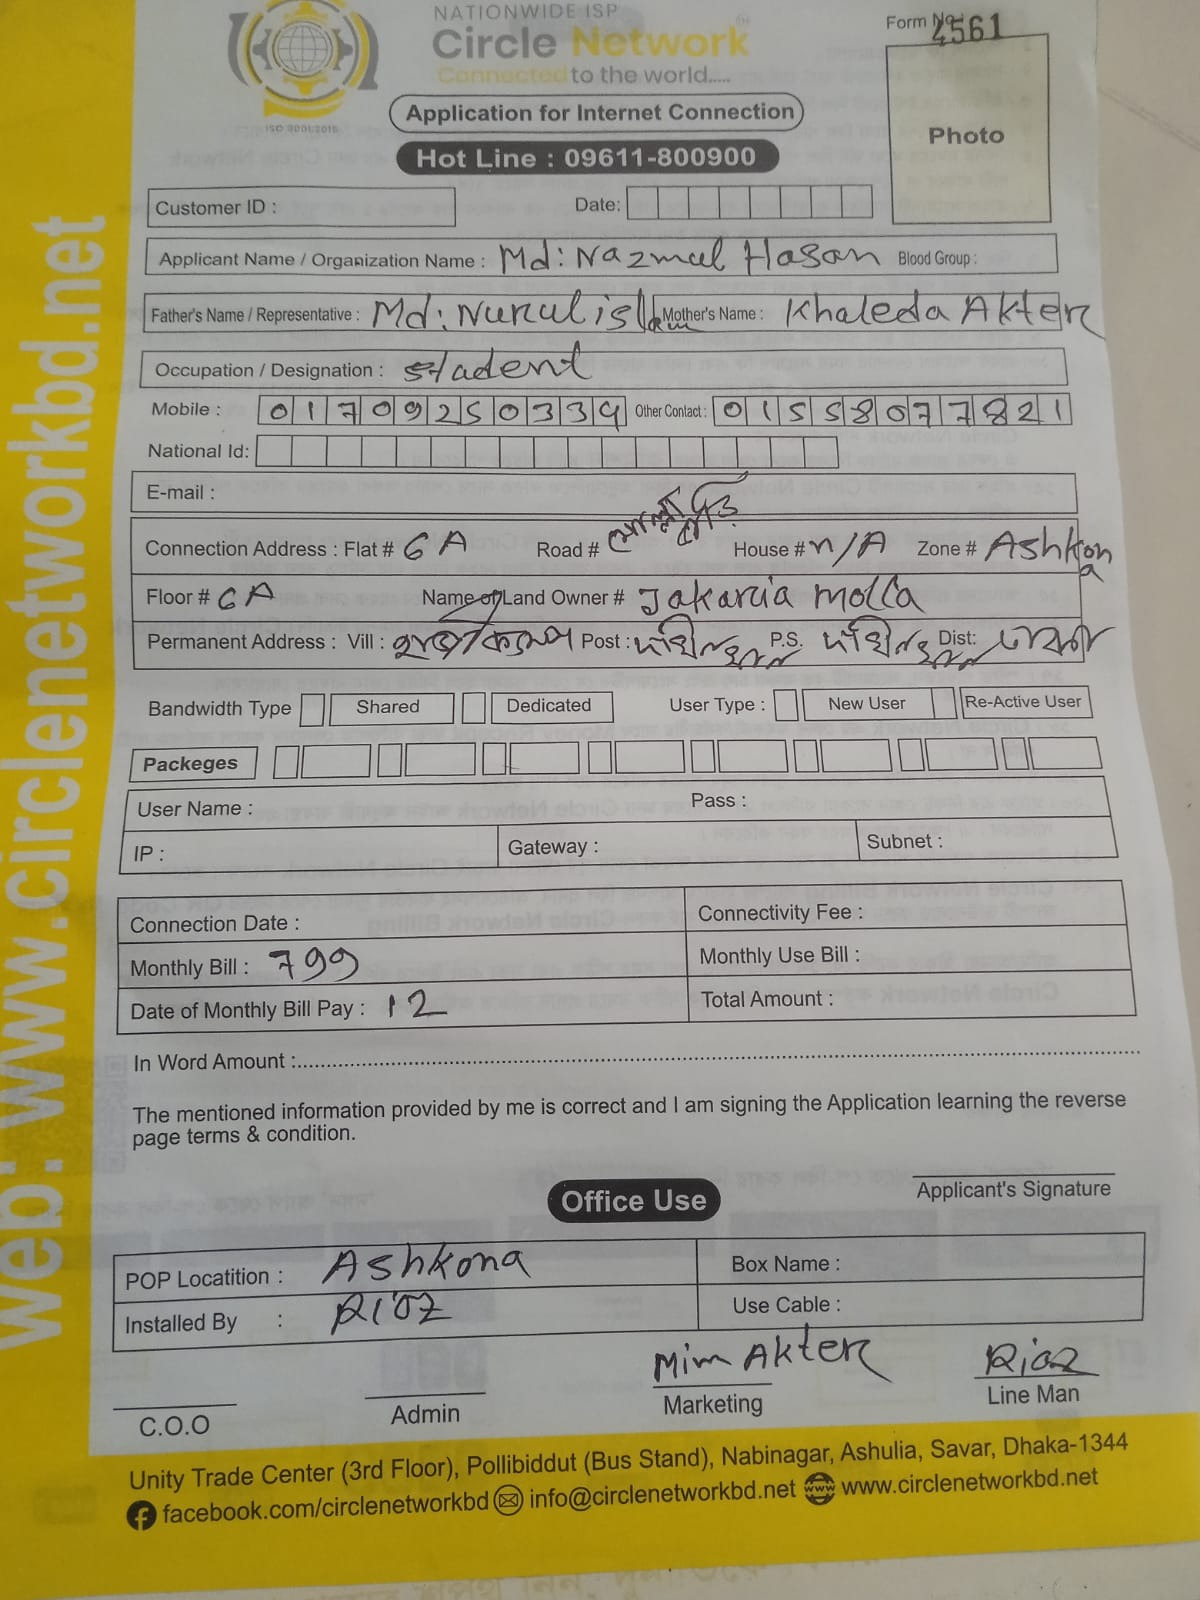 NATIONWIDE ISP
Circle Network
Connected to the world.....
ISO 9001:2015
Form No: 4561
Photo
Application for Internet Connection
Hot Line : 09611-800900
Customer ID :
Date:
Applicant Name / Organization Name : Md: Nazmul Hasan Blood Group :
Father's Name / Representative : Md: Nurul islam Mother's Name : Khaleda Akter
Occupation / Designation : stadent
Mobile : 01709250339 Other Contact : 01558077821
National Id:
E-mail :
Connection Address : Flat # 6A Road # House # n/A Zone # Ashkona
Floor # 6A Name of Land Owner # Jakaria molla
Permanent Address : Vill : Post : P.S. Dist:
Bandwidth Type Shared Dedicated User Type : New User Re-Active User
Packeges
User Name : Pass :
IP : Gateway : Subnet :
Connection Date : Connectivity Fee :
Monthly Bill : 799 Monthly Use Bill :
Date of Monthly Bill Pay : 12 Total Amount :
In Word Amount :
The mentioned information provided by me is correct and I am signing the Application learning the reverse
page terms & condition.
Applicant's Signature
Office Use
POP Locatition : Ashkona Box Name :
Installed By : Riaz Use Cable :
Mim Akter Riaz
C.O.O Admin Marketing Line Man
Unity Trade Center (3rd Floor), Pollibiddut (Bus Stand), Nabinagar, Ashulia, Savar, Dhaka-1344
facebook.com/circlenetworkbd info@circlenetworkbd.net www.circlenetworkbd.net
web: www.circlenetworkbd.net